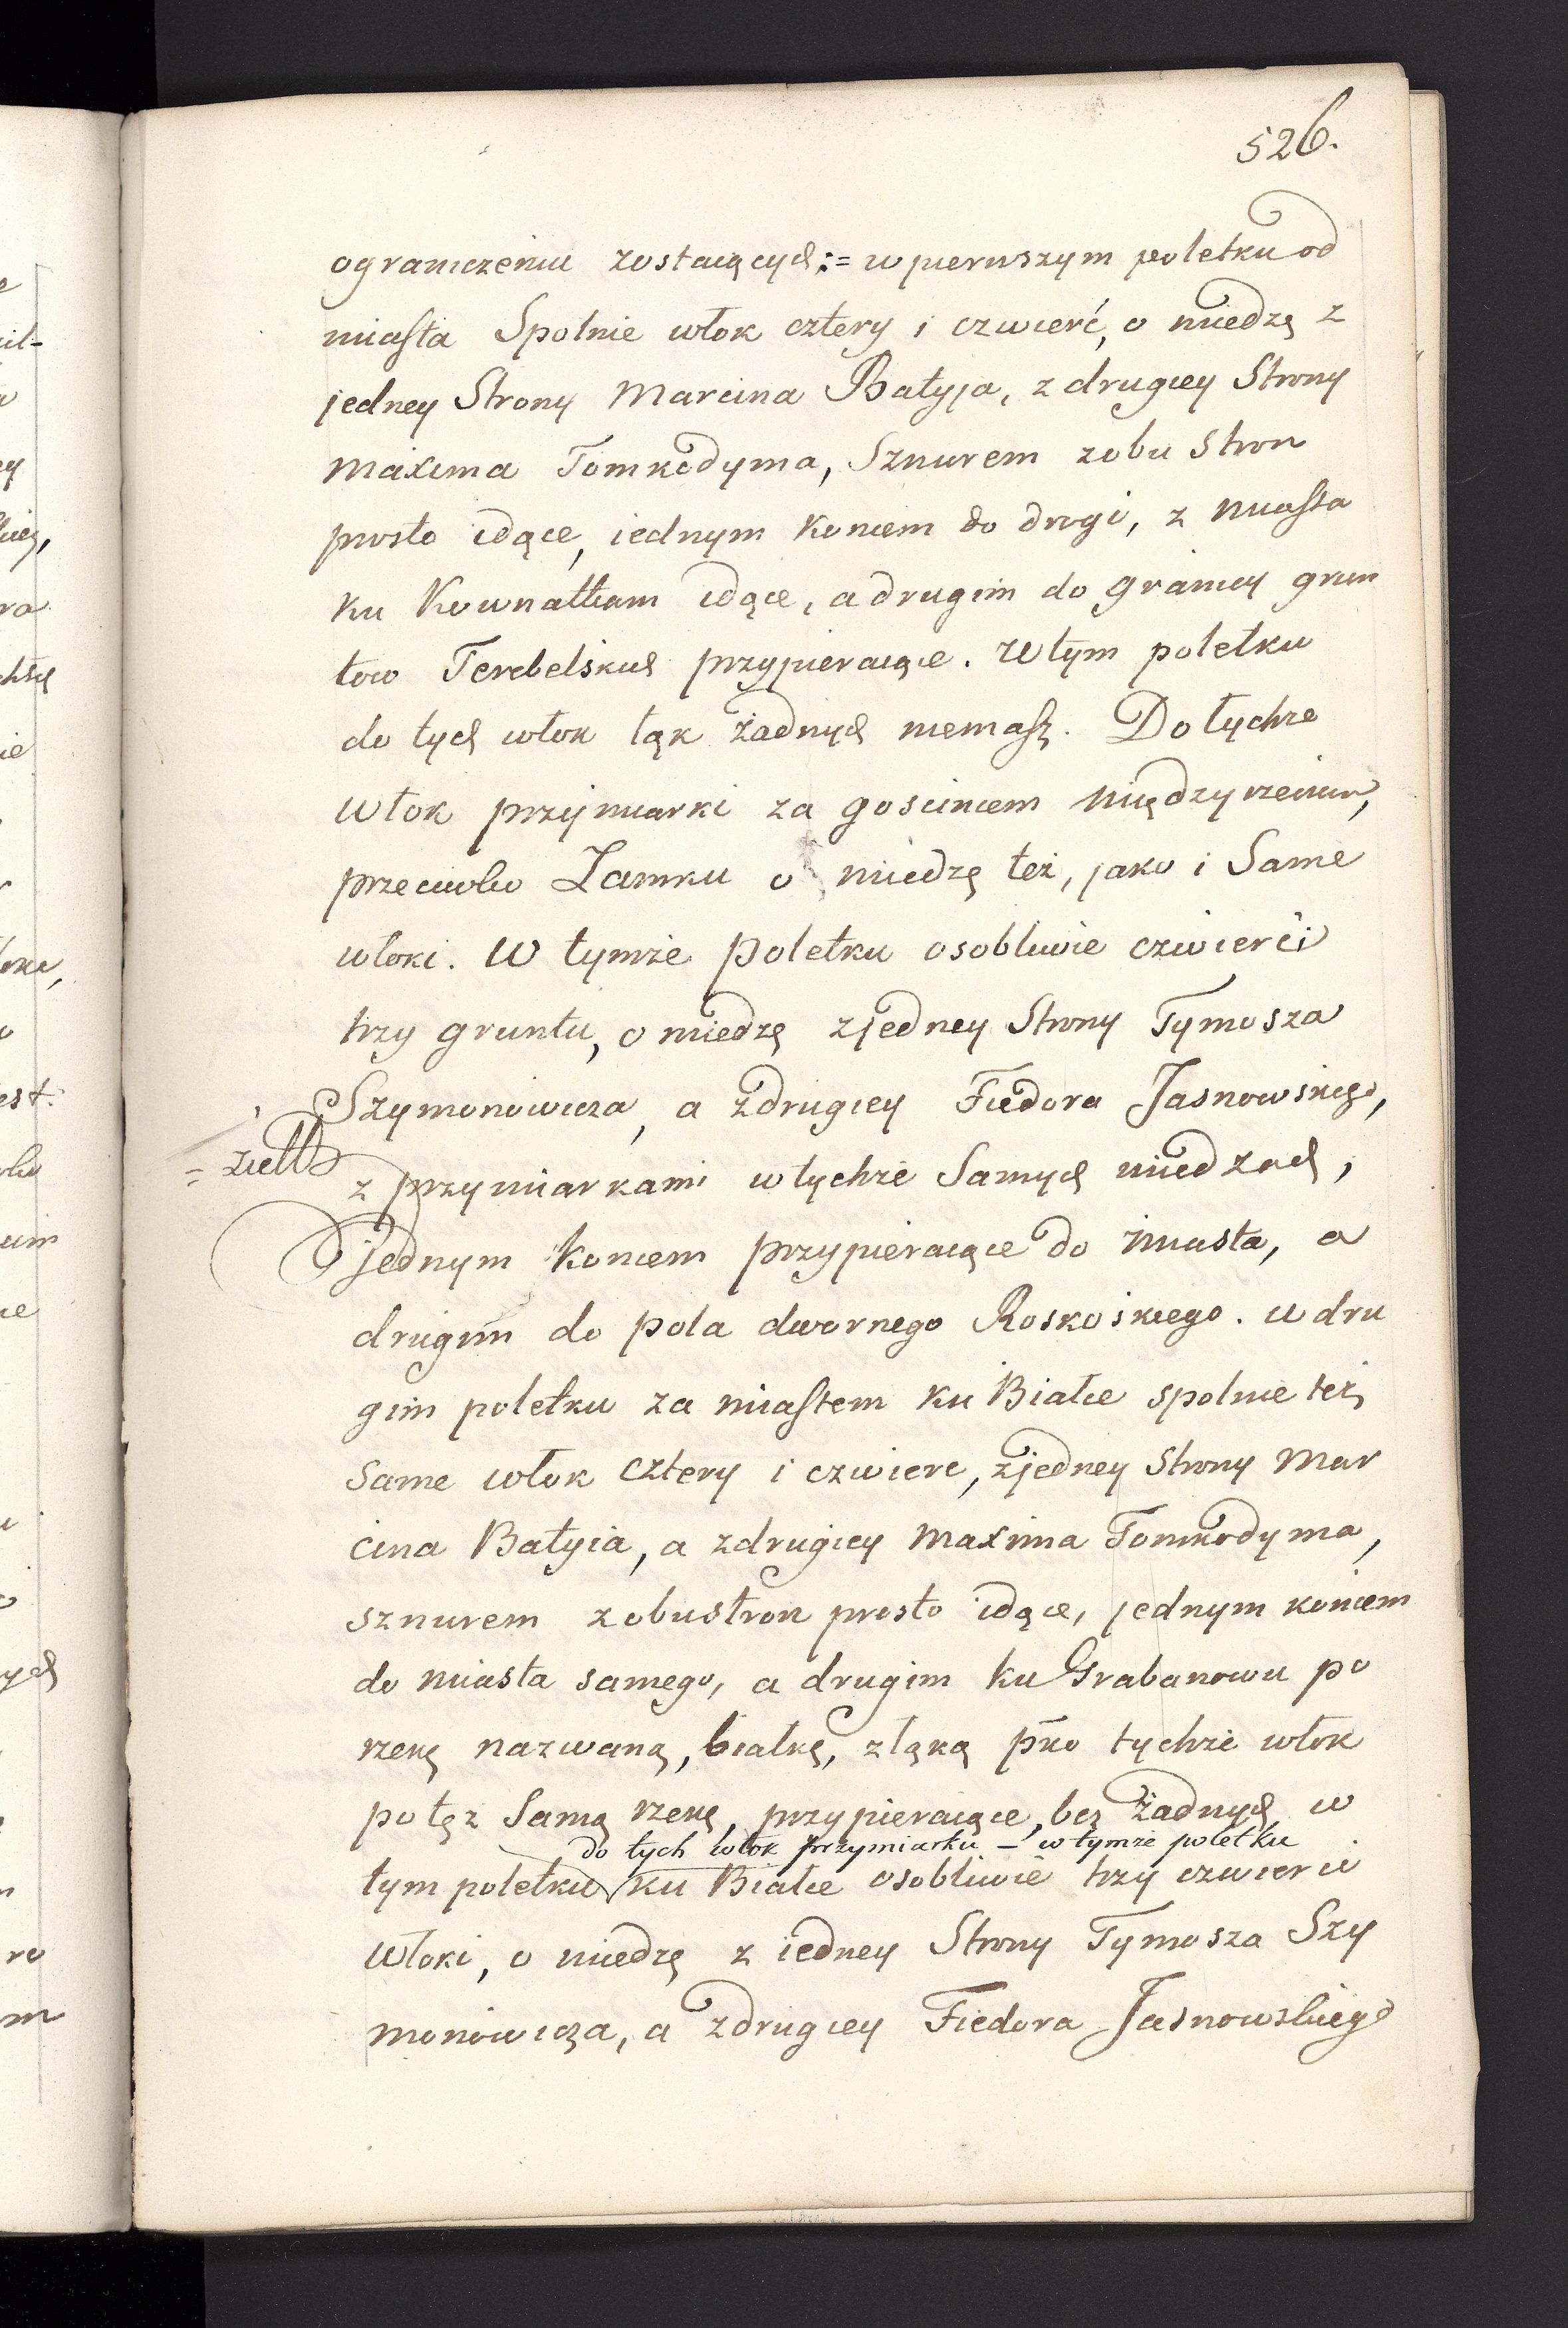 526.
ograniczeniu zostaiących := w pierwszym poletku od
miasta Spolnie włok cztery i czwierć, o miedzę z
jedney Strony Marcina Bałyja, z drugiey Strony
Maxima Tomkodyma, Sznurem zobu Stron
prosto idące, iednym koncem do drogi, z miasta
ku Kownatkam idące, a drugim do granicy grun
tow Terebelskich przypieraiące. W tym poletku
do tych włok łąk żadnych niemasz. Do tychze
Włok przymiarki za goscincem międzyrzeckim,
przeciwko Zamku o miedzę też, jako i Same
włoki. W tymże poletku osobliwie czwierći
trzy gruntu, o miedzę zjedney Strony Tymosza
Szymonowicza, a zdrugiey Fiedora Jasnowskiego,
z przymiarkami w tychże Samych miedzach,
jednym koncem przypieraiące do miasta, a
drugim do pola dwornego Roskoskiego. w dru
gim poletku za miastem ku Białce spolnie też
same włok cztery i czwierc, zjedney Strony Mar
cina Bałyia, a zdrugiey Maxima Tomkodyma,
sznurem zobustron prosto idące, jednym koncem
do miasta samego, a drugim ku Grabanowu po
rzekę nazwaną, białkę, z łąką pko tychże włok
po tęz Samą rzekę, przypieraiące, bez żadnych w
do tych włok przymiarku – w tymże poletku
tym poletku ku Białce osobliwie trzy czwierci
Włoki, o miedzę z iedney Strony Tymosza Szy
monowicza, a zdrugiey Fiedora Jasnowskiego